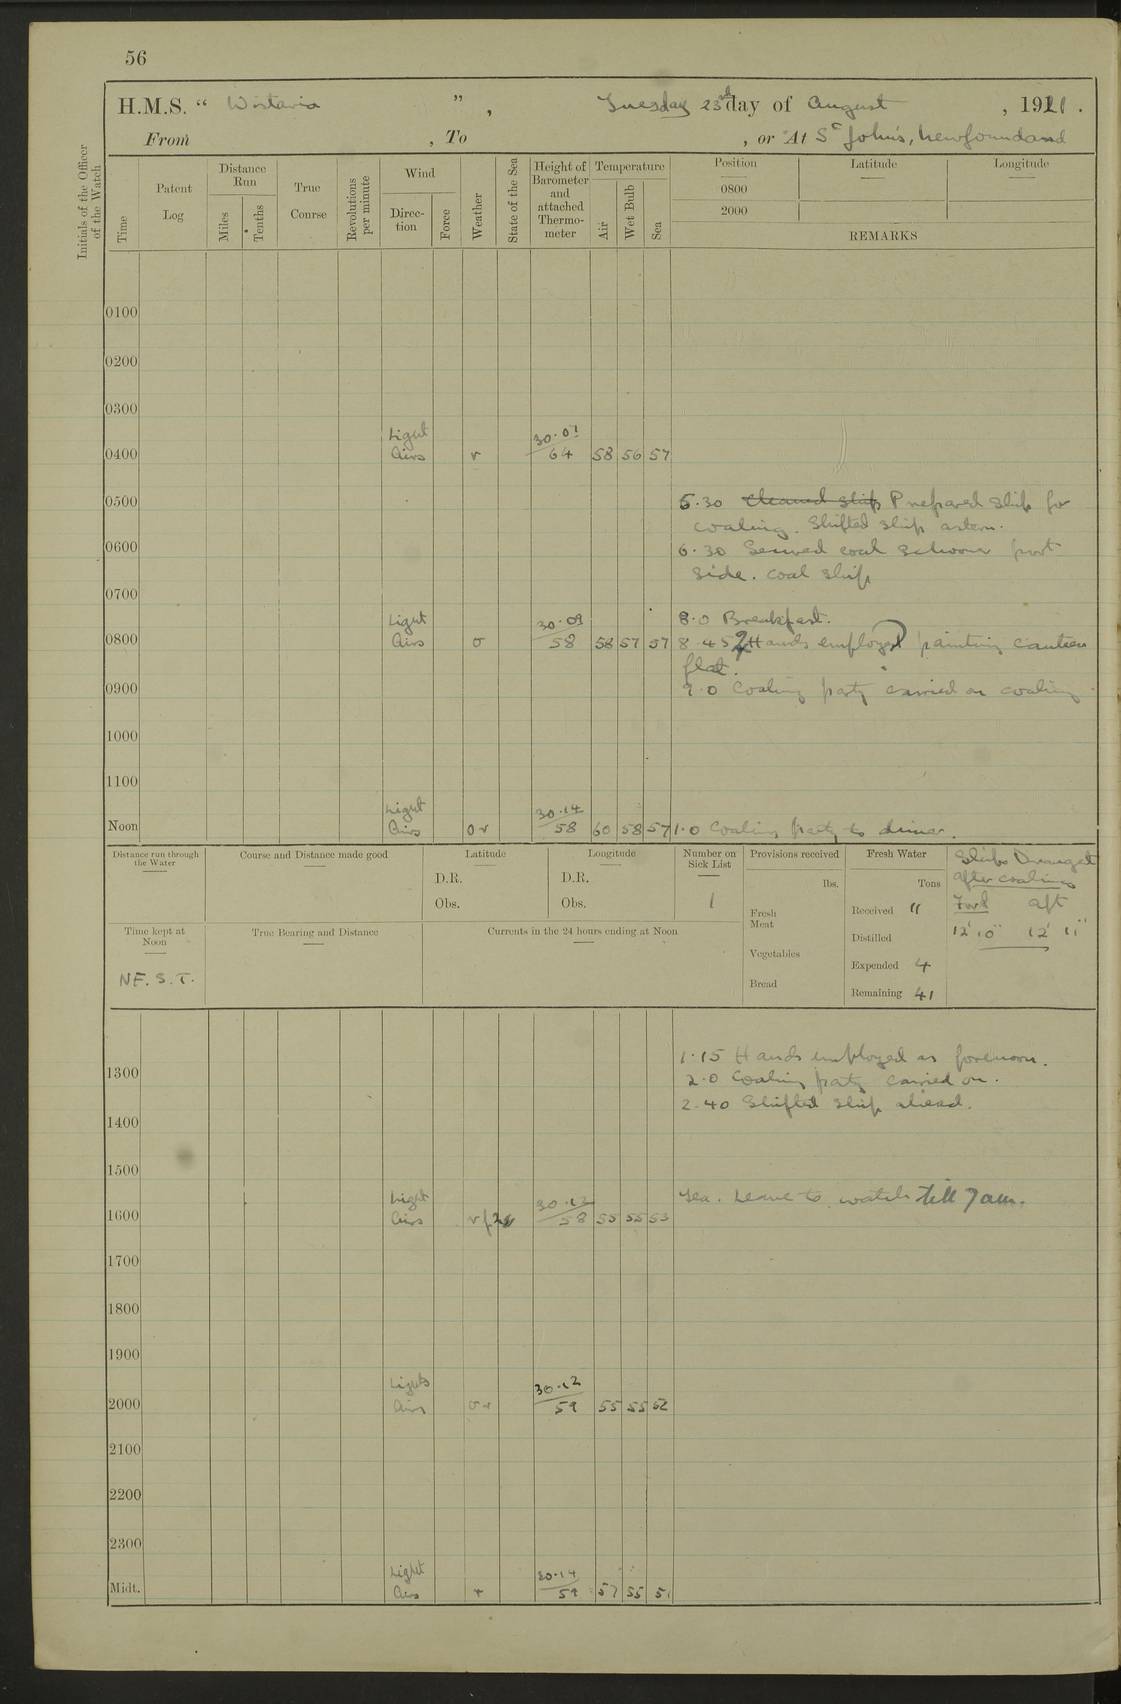 56
H.M.S. " Wistaria " , Tuesday 23rd day of August , 1921 .
From , To , or At St John's, Newfoundland
Initials of the Officer of the Watch
Time Patent Log Distance Run Miles Tenths True Course Revolutions per minute Wind Direc-tion Force Weather State of the Sea Height of Barometer and attached Thermo-meter Temperature Air Wet Bulb Sea Position Latitude Longitude
0800
2000
REMARKS
0100
0200
0300
Light 30.01
0400 Airs v 64 58 56 57
0500 5.30 Cleaned ship Prepared ship for
coaling. Shifted ship astern.
0600 6.30 Secured coal schooner port
side. Coal ship
0700
Light 30.09 8.0 Breakfast.
0800 Airs o 58 58 57 57 8.45 2 Hands employed painting canteen
flat.
0900 9.0 Coaling party carried on coaling.
1000
1100
Light 30.14
Noon Airs o v 58 60 58 57 1.0 Coaling party to dinner.
Distance run through the Water Course and Distance made good Latitude Longitude Number on Sick List Provisions received Fresh Water Ships Draught
after coaling
D.R. D.R. lbs. Tons
Obs. Obs. 1 Fresh Meat Received " Ford aft
Time kept at Noon True Bearing and Distance Currents in the 24 hours ending at Noon Distilled 12' 10" 12' 11"
Vegetables
Expended 4
N F. S. T. Bread Remaining 41
1.15 Hands employed as forenoon.
1300 2.0 Coaling party carried on.
2.40 Shifted ship ahead.
1400
1500
Light 30.12 Tea. Leave to watch till 7 am.
1600 Airs 58 55 55 53
1700
1800
1900
Light 30.12
2000 Airs o v 59 55 55 52
2100
2200
2300
Light 30.14
Midt. Airs 59 57 55 51